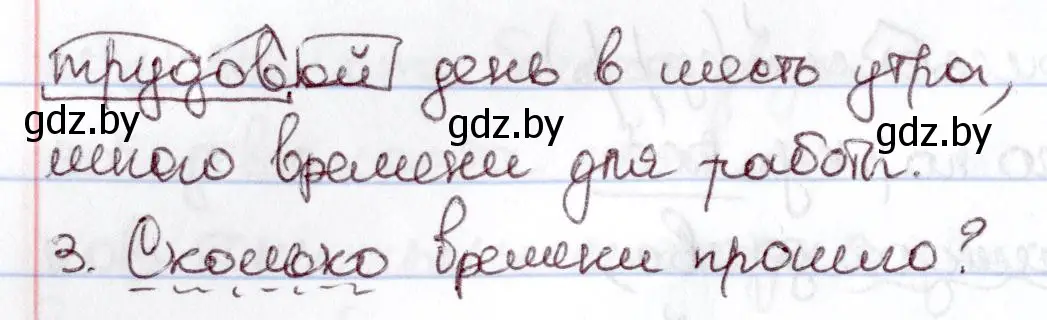 трудовой день в шесть утра,
gdz.by gdz.by gdz.by
много времени для работы.
3. Сколько времени прошло?